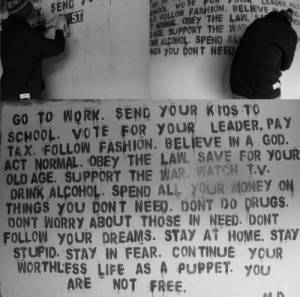 SEND
ST
GO TO WORK. SEND YOUR KIDS TO
SCHOOL. VOTE FOR YOUR LEADER. PAY
TAX. FOLLOW FASHION. BELIEVE IN A
NORMAL. OBEY THE LAW. SAVE
OLD AGE. SUPPORT THE WAR.
DRINK ALCOHOL. SPEND ALL
THINGS YOU DONT NEED.
GO TO WORK. SEND YOUR KIDS TO
SCHOOL. VOTE FOR YOUR LEADER. PAY
TAX. FOLLOW FASHION. BELIEVE IN A GOD.
ACT NORMAL. OBEY THE LAW. SAVE FOR YOUR
OLD AGE. SUPPORT THE WAR. WATCH T.V.
DRINK ALCOHOL. SPEND ALL YOUR MONEY ON
THINGS YOU DONT NEED. DONT DO DRUGS.
DONT WORRY ABOUT THOSE IN NEED. DONT
FOLLOW YOUR DREAMS. STAY AT HOME. STAY
STUPID. STAY IN FEAR. CONTINUE YOUR
WORTHLESS LIFE AS A PUPPET. YOU
ARE NOT FREE.